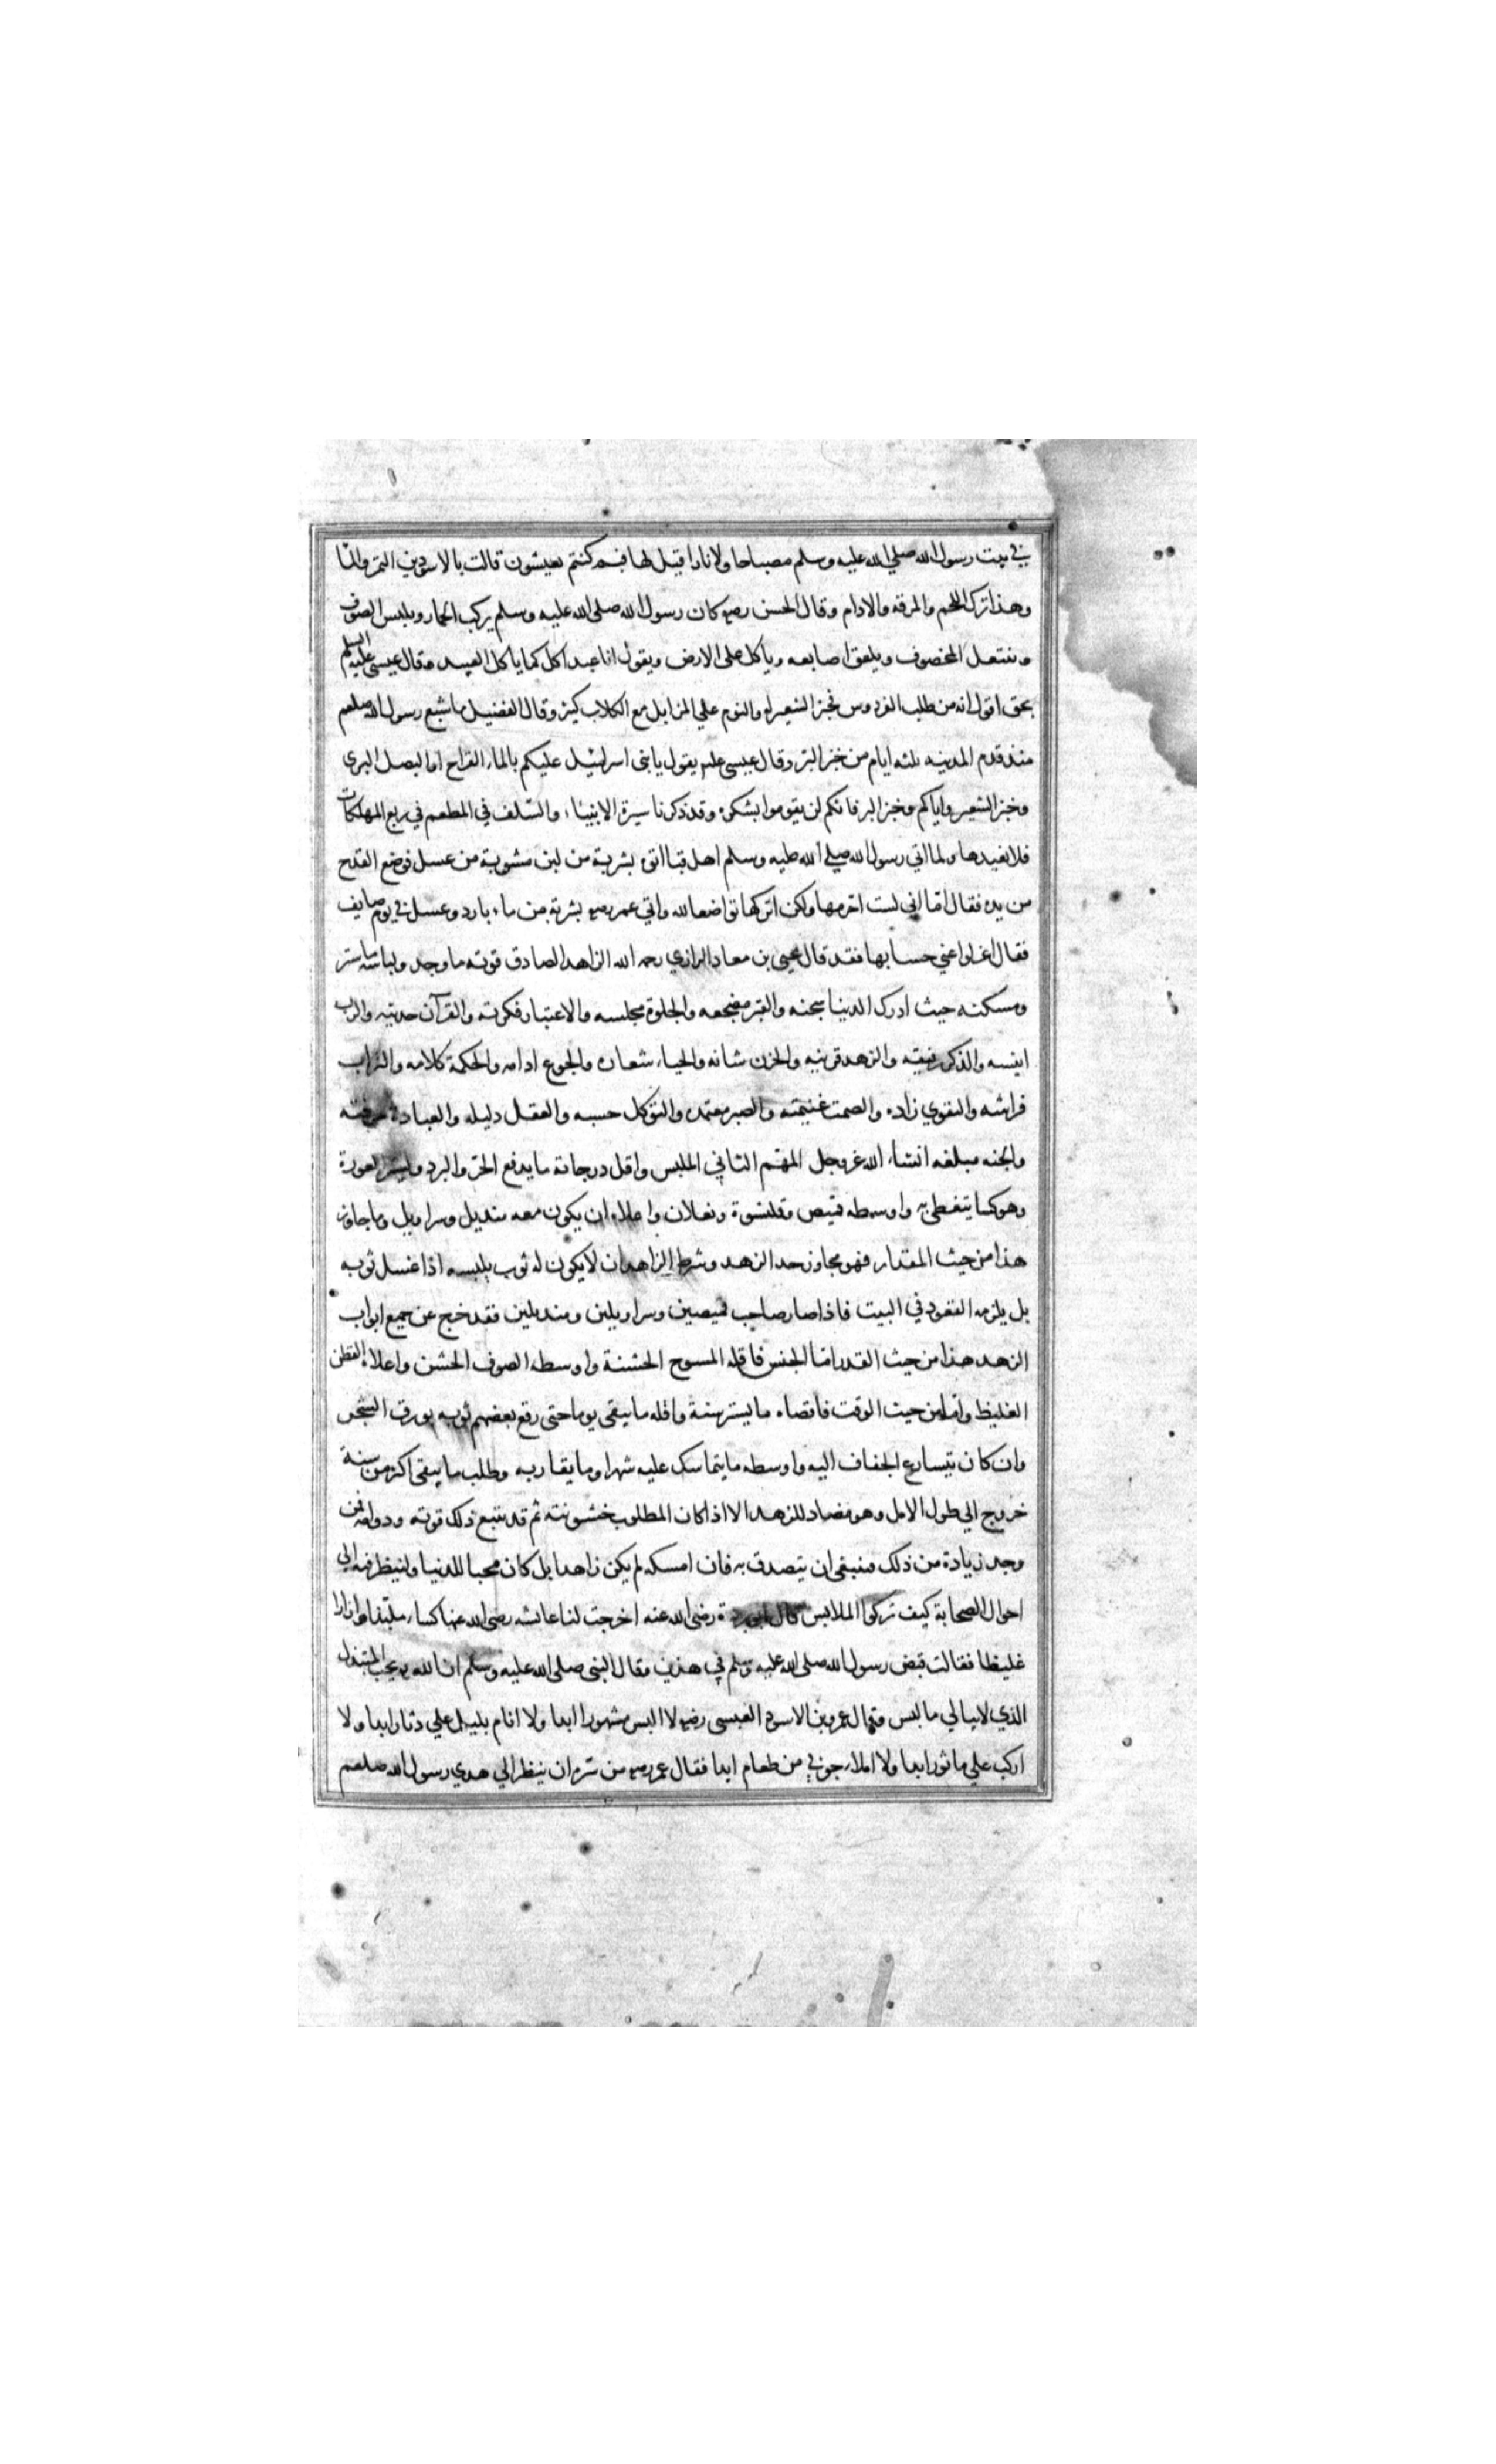 في بيت رسول الله صلي الله عليه وسلم مصباحا ولا نارا قيل لها فبم كنتم تعيشون قالت بالاسودين التمر والما
وهذا ترك اللحم والمرقه والادام وقال الحسن رضه كان رسول الله صلى الله عليه وسلم يركب الحمار ويلبس الصوف
وينتعل المخصوف ويلعق اصابعه وياكل على الارض ويقول انا عبد اكل كما ياكل العبيد وقال عيسى عليه السلم
بحق اقول انه من طلب الفردوس فخبز الشعير له والنوم علي المزابل مع الكلاب كثير وقال الفضيل ما شبع رسول الله صلعم
منذ قدم المدينه ثلثه ايام من خبز البر وقال عيسى علم يقول يا بني اسرائيل عليكم بالماء القراح اما البصل البري
وخبز الشعير واياكم وخبز البر فانكم لن تقوموا بشكره وقد ذكرنا سيرة الانبياء والسلف في المطعم في ربع المهلكات
فلا نعيدها ولما اتي رسول الله صلي الله عليه وسلم اهل قبا اتوه بشربة من لبن مشوبة من عسل فوضع القدح
من يده فقال اما اني لست احرمها ولكن اتركها تواضعا لله واتي عمر رضه بشربة من ماء بارد وعسل في يوم صايف
فقال اعزلوا عني حسابها فقد قال يحيى بن معاد الرازي رحمه الله الزاهد الصادق قوته ما وجد ولباسه ما ستر
ومسكنه حيث ادرك الدنيا سجنه والقبر مضجعه والخلوة مجلسه والاعتبار فكرته والقرآن حديثه والرب
انيسه والذكر رفيقه والزهد قرينه والحزن شانه والحياء شعاره والجوع ادامه والحكمة كلامه والتراب
فراشه والتقوي زاده والصمت غنيمته والصبر معتمده والتوكل حسبه والعقل دليله والعبادة حرفته
والجنه مبلغه انشاء الله عز وجل المهم الثاني الملبس واقل درجاته ما يدفع الحر والبرد ويستر العورة
وهو كسا يتغطى به واوسطه قميص وقلنسوة ونعلان واعلاه ان يكون معه منديل وسراويل وما جاوز
هذا من حيث المقدار فهو مجاوز حد الزهد وشرط الزاهد ان لا يكون له ثوب يلبسه اذا غسل ثوبه
بل يلزمه القعود في البيت فاذا صار صاحب قميصين وسراويلين ومنديلين فقد خرج عن جميع ابواب
الزهد هذا من حيث القدر اما الجنس فاقله المسوح الخشنة واوسطه الصوف الخشن واعلاه القطن
الغليظ واما من حيث الوقت فاقصاه ما يستر سنة واقله ما يبقى يوما حتى رقع بعضهم ثوبه بورق الشجر
وان كان يتسارع الجفاف اليه واوسطه ما يتماسك عليه شهرا وما يقاربه وطلب ما يبقى اكثر من سنة
خروج الي طول الامل وهو مضاد للزهد الا اذا كان المطلوب خشونته ثم قد يتبع ذلك قوته ودوامه فمن
وجد زيادة من ذلك فينبغي ان يتصدق به فان امسكه لم يكن زاهدا بل كان محبا للدنيا ولينظر فيه الي
احوال الصحابة كيف تركوا الملابس قال ابو بردة رضى الله عنه اخرجت لنا عائشه رضى الله عنها كساء ملبدا وازارا
غليظا فقالت قبض رسول الله صلى الله عليه وسلم في هذين وقال النبى صلى الله عليه وسلم ان الله يحب المتبذل
الذي لا يبالي ما لبس وقال عمرو بن الاسود العبسى رضه لا البس مشهورا ابدا ولا انام بليل علي دثار ابدا ولا
اركب علي ماثور ابدا ولا املاء جوفي من طعام ابدا فقال عمر رضه من سره ان ينظر الي هدي رسول الله صلعم